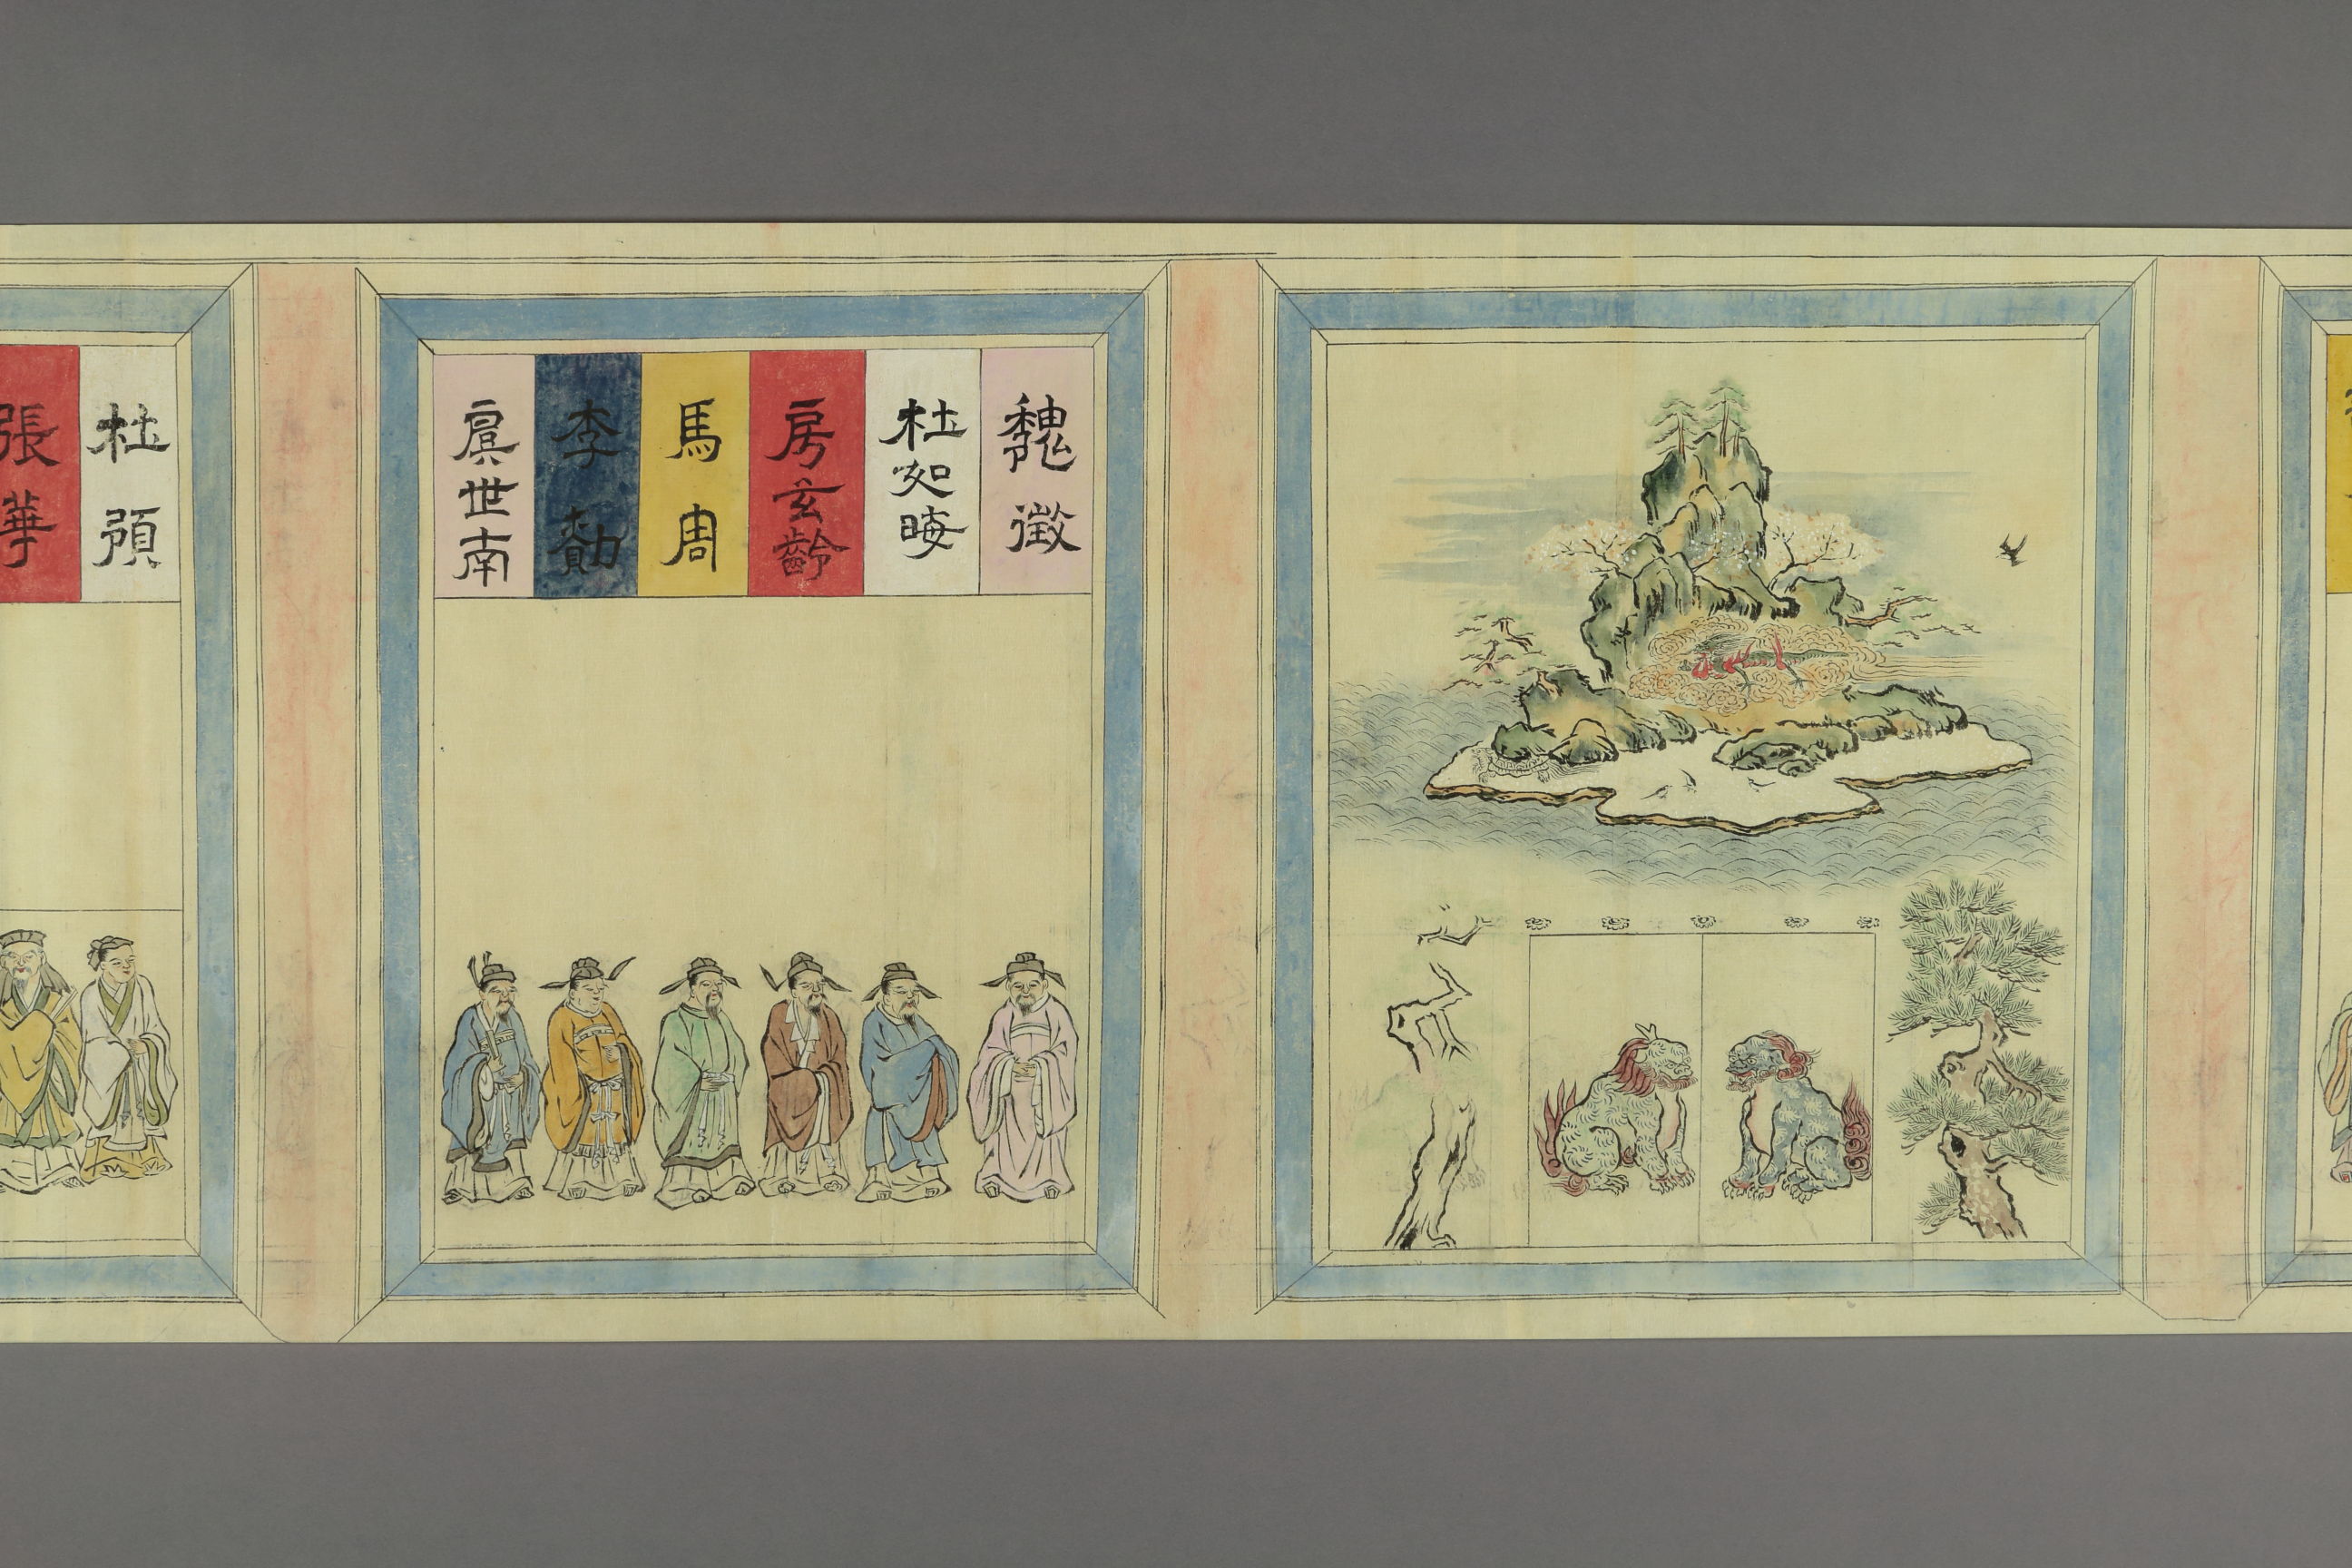 魏徴
杜如晦
房玄齡
馬周
李勣
虞世南
杜預
張華